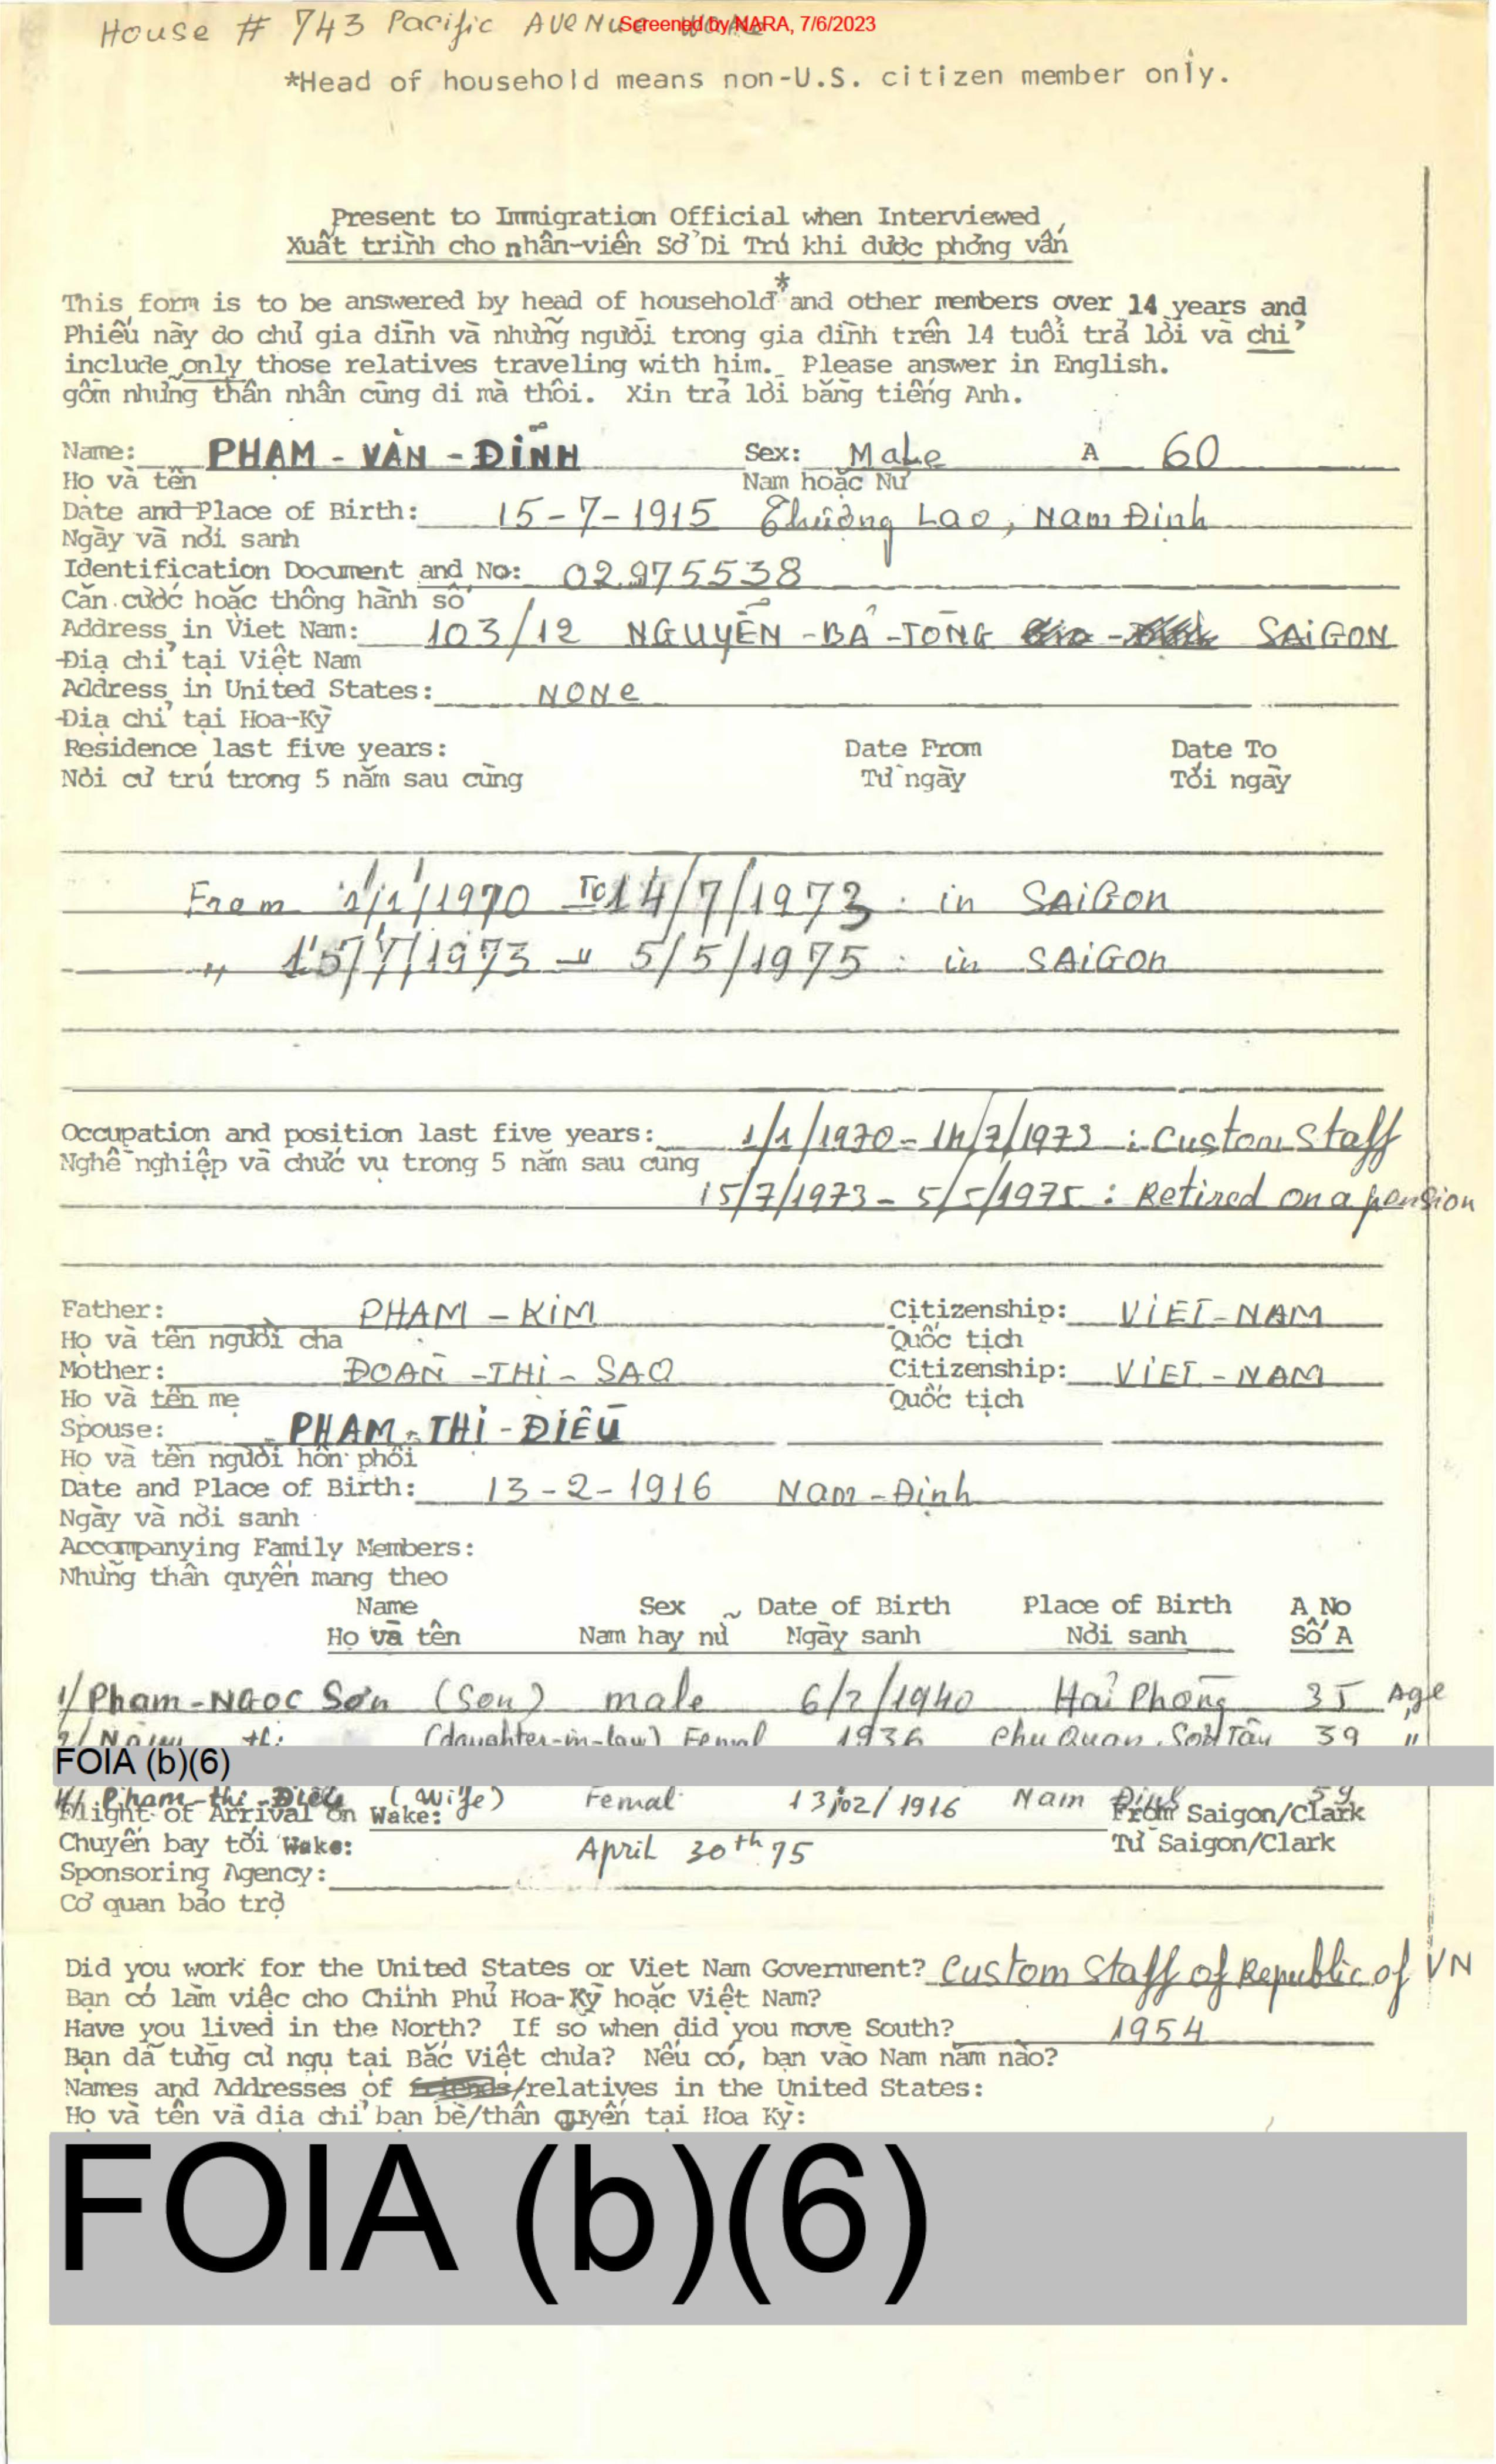 House # 743 Pacific AveNue
Screened by NARA, 7/6/2023
*Head of household means non-U.S. citizen member only.
Present to Immigration Official when Interviewed
Xuất trình cho nhân-viên Sở Di Trú khi được phỏng vấn
This form is to be answered by head of household* and other members over 14 years and
Phiếu này do chủ gia đình và những người trong gia đình trên 14 tuổi trả lời và chỉ
include only those relatives traveling with him. Please answer in English.
gồm những thân nhân cùng di mà thôi. Xin trả lời bằng tiếng Anh.
Name: PHẠM - VĂN - ĐỈNH Sex: Male A 60
Họ và tên Nam hoặc Nữ
Date and Place of Birth: 15-7-1915 Thượng Lao, Nam Định
Ngày và nơi sanh
Identification Document and No: 02975538
Căn cước hoặc thông hành số
Address in Viet Nam: 103/12 NGUYỄN - BÁ - TÒNG SAIGON
Địa chỉ tại Việt Nam
Address in United States: NONe
Địa chỉ tại Hoa-Kỳ
Residence last five years: Date From Date To
Nơi cư trú trong 5 năm sau cùng Từ ngày Tới ngày
From 1/1/1970 To 14/7/1973 : in SAIGon
" 15/7/1973 - " 5/5/1975 : in SAIGon
Occupation and position last five years: 1/1/1970 - 14/7/1973 : Custom Staff
Nghề nghiệp và chức vụ trong 5 năm sau cùng
15/7/1973 - 5/5/1975 : Retired on a pension
Father: PHẠM - KIM Citizenship: VIET-NAM
Họ và tên người cha Quốc tịch
Mother: ĐOÀN - THỊ - SAO Citizenship: VIET-NAM
Họ và tên mẹ Quốc tịch
Spouse: PHẠM - THỊ - ĐIỀU
Họ và tên người hôn phối
Date and Place of Birth: 13-2-1916 Nam-Định
Ngày và nơi sanh
Accompanying Family Members:
Những thân quyến mang theo
Name Sex Date of Birth Place of Birth A No
Họ và tên Nam hay nữ Ngày sanh Nơi sanh Số A
1/ Pham-Ngoc Sơn (Son) male 6/7/1940 Hải Phòng 35 Age
2/ thị (daughter-in-law) Femal 1936 Phu Quan, Sơn Tây 39 "
FOIA (b)(6)
4/ Pham-thi-Điều (Wife) Femal 13/02/1916 Nam Định 59
Flight of Arrival on Wake: From Saigon/Clark
Chuyến bay tới Wake: April 30th 75 Từ Saigon/Clark
Sponsoring Agency:
Cơ quan bảo trợ
Did you work for the United States or Viet Nam Government? Custom Staff of Republic of VN
Bạn có làm việc cho Chính Phủ Hoa-Kỳ hoặc Việt Nam?
Have you lived in the North? If so when did you move South? 1954
Bạn đã từng cư ngụ tại Bắc Việt chưa? Nếu có, bạn vào Nam năm nào?
Names and Addresses of friends/relatives in the United States:
Họ và tên và địa chỉ bạn bè/thân quyến tại Hoa Kỳ:
FOIA (b)(6)